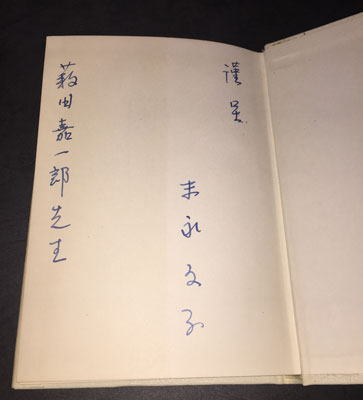 謹呈
末永文子
薮田嘉一郎先生